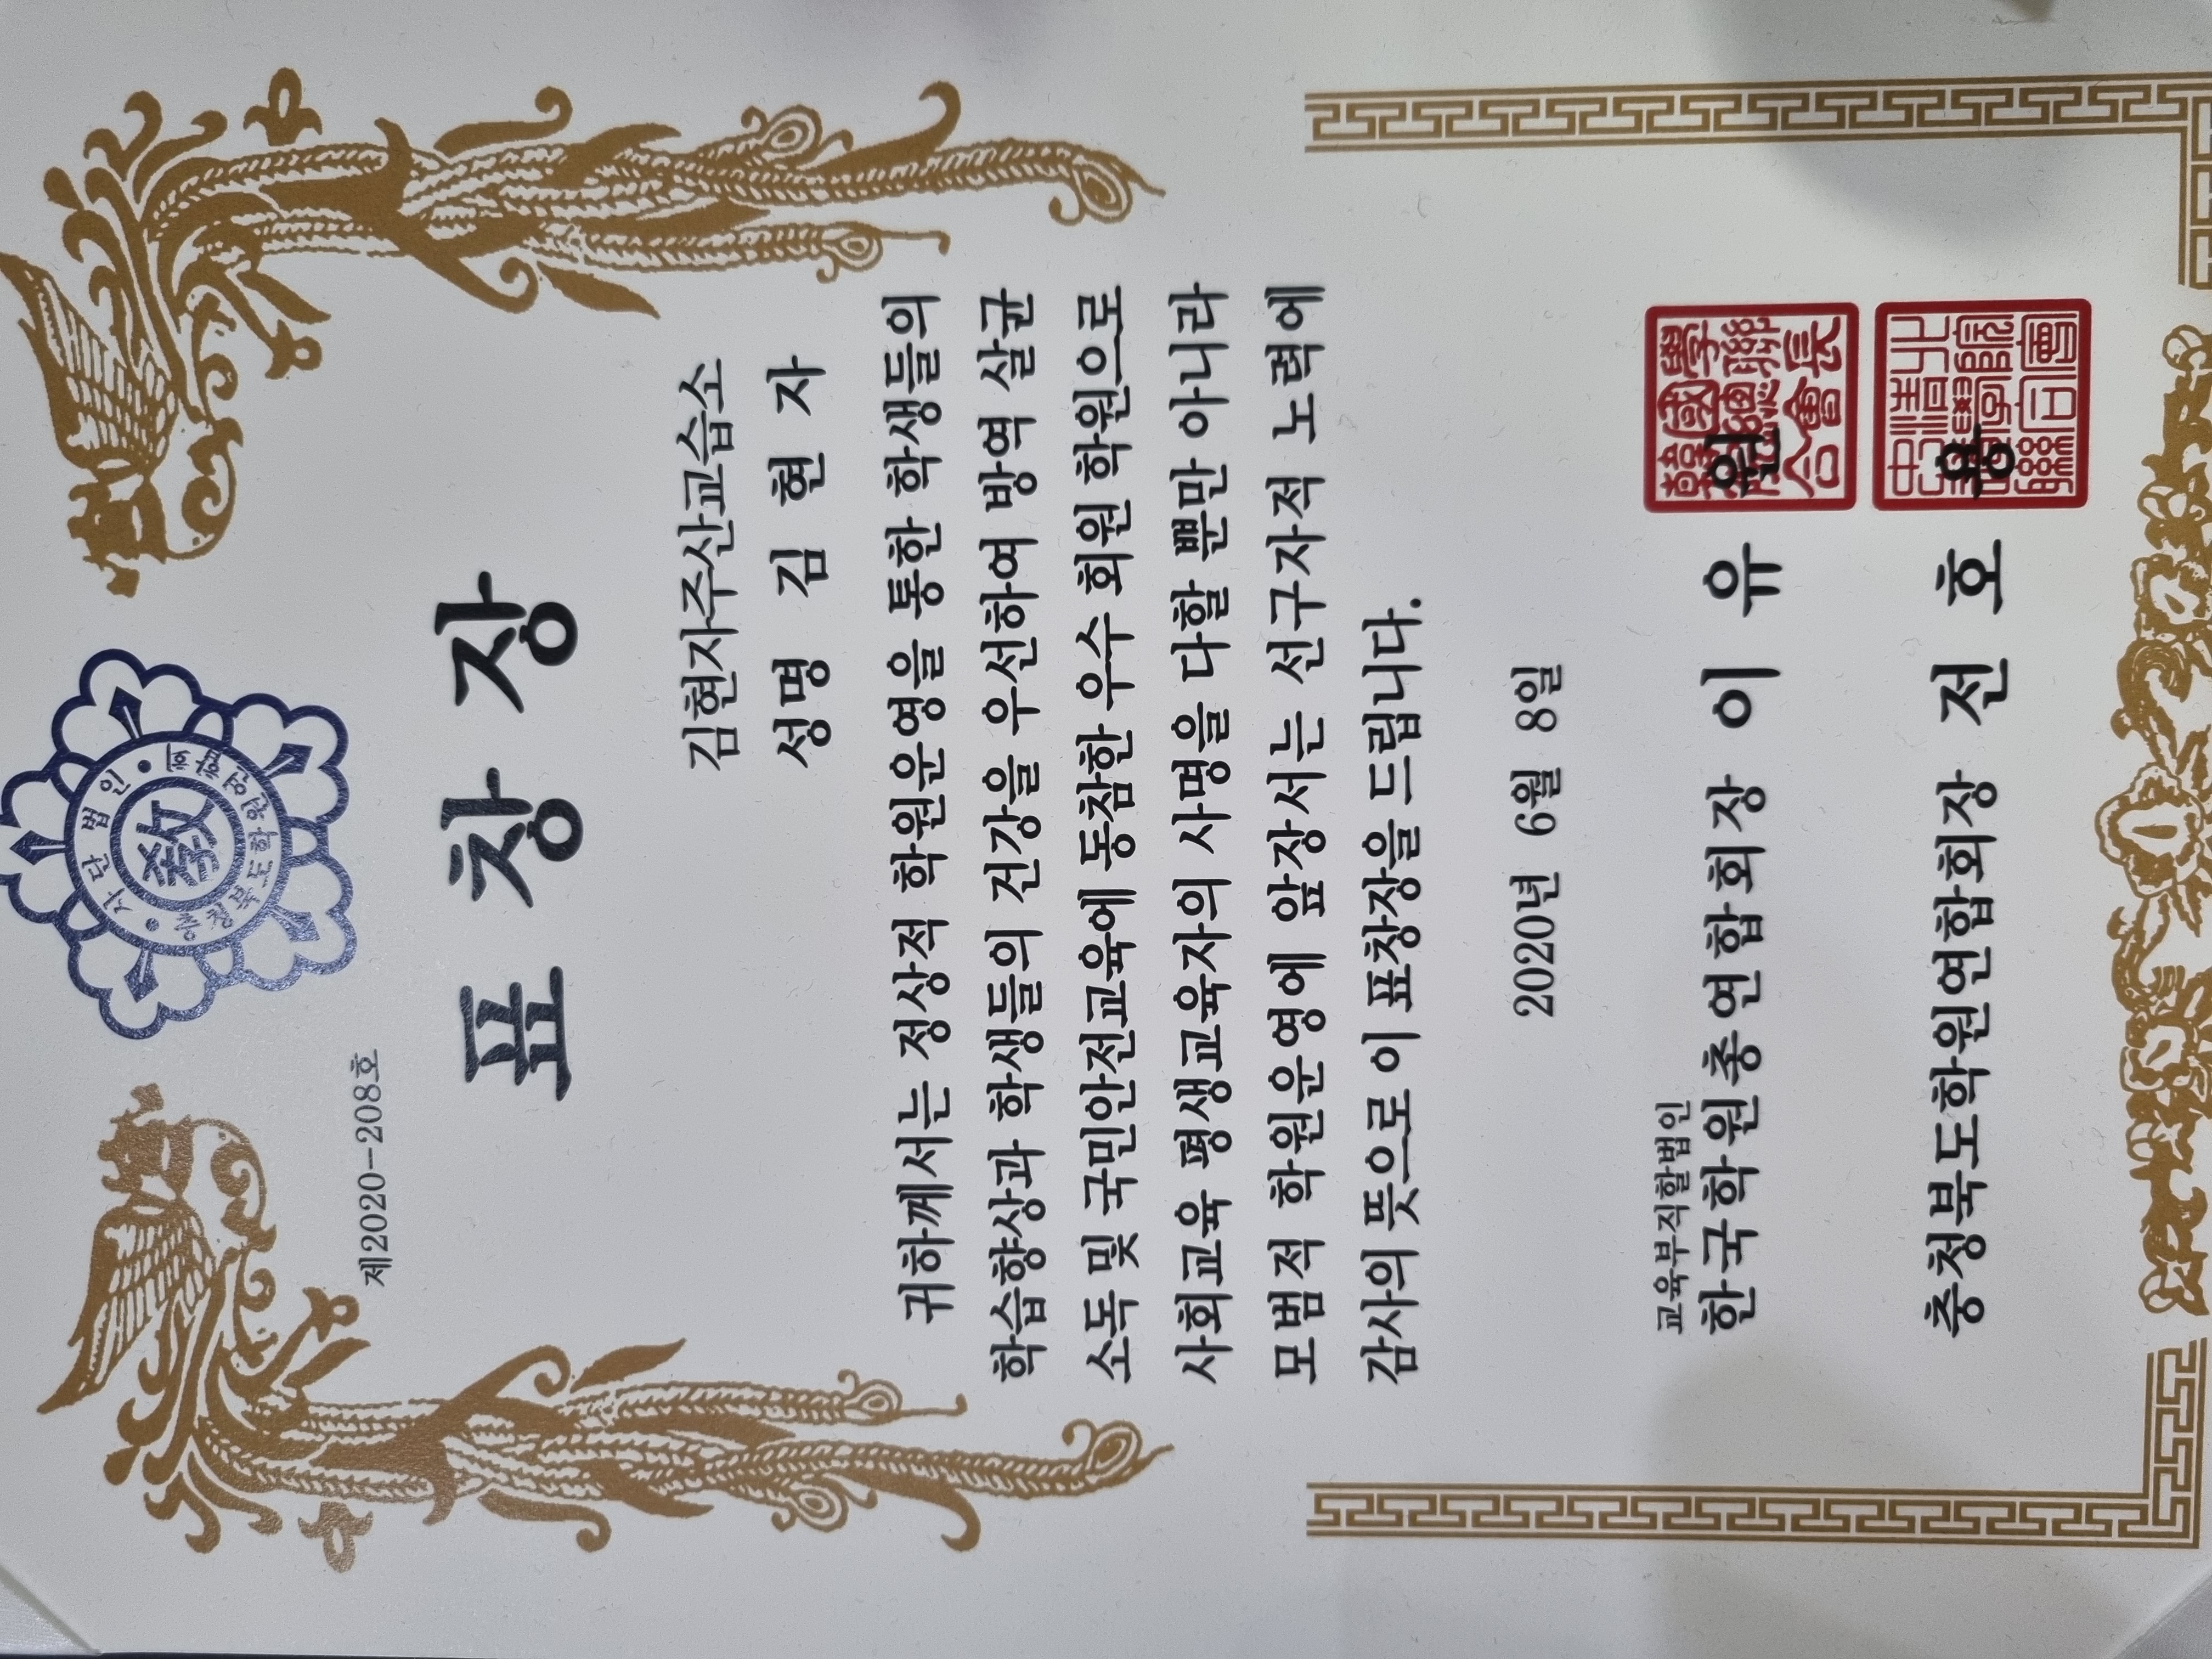 사단법인
충청북도학원연합회
敎
제2020-208호
표 창 장
김현자주산교습소
성명 김 현 자
귀하께서는 정상적 학원운영을 통한 학생들의
학습향상과 학생들의 건강을 우선하여 방역 살균
소독 및 국민안전교육에 동참한 우수 회원 학원으로
사회교육 평생교육자의 사명을 다할 뿐만 아니라
모범적 학원운영에 앞장서는 선구자적 노력에
감사의 뜻으로 이 표창장을 드립니다.
2020년 6월 8일
교육부직할법인
한국학원총연합회장 이 유 원
충청북도학원연합회장 전 호 용